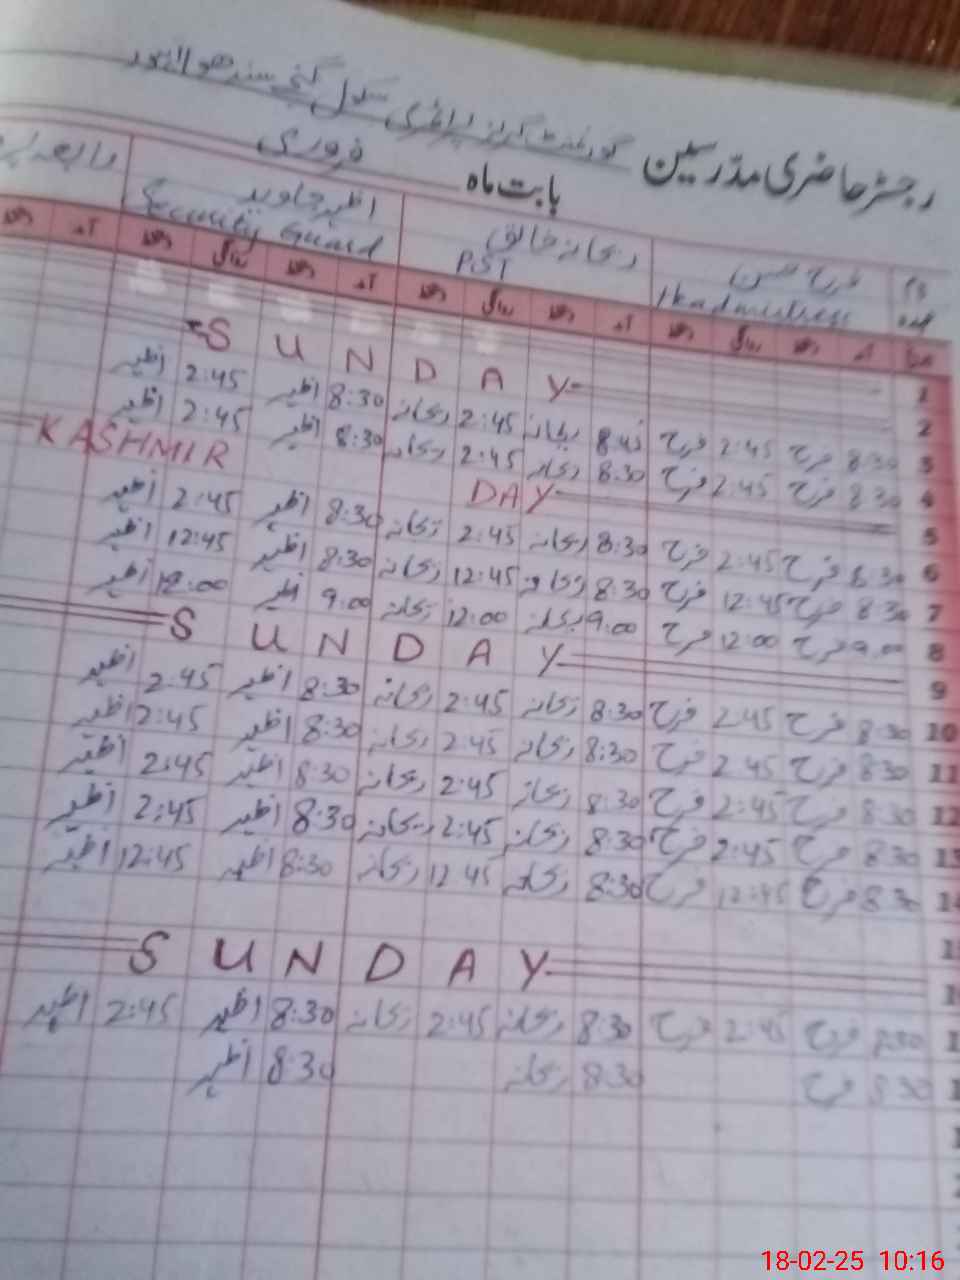 رجسٹر حاضری مدرسین گورنمنٹ گرلز پرائمری سکول
بابت ماہ فروری
نام فرح ریحانہ خالق اظہر جاوید رابعہ
عہدہ Headmistress PST Security Guard
تاریخ آمد دستخط روانگی دستخط آمد دستخط روانگی دستخط آمد دستخط روانگی دستخط آمد دستخط
1
2 SUNDAY
3 8:30 فرح 2:45 فرح 8:45 ریحانہ 2:45 ریحانہ 8:30 اظہر 2:45 اظہر
4 8:30 فرح 2:45 فرح 8:30 ریحانہ 2:45 ریحانہ 8:30 اظہر 2:45 اظہر
5 KASHMIR DAY
6 8:30 فرح 2:45 فرح 8:30 ریحانہ 2:45 ریحانہ 8:30 اظہر 2:45 اظہر
7 8:30 فرح 12:45 فرح 8:30 ریحانہ 12:45 ریحانہ 8:30 اظہر 12:45 اظہر
8 9:00 فرح 12:00 فرح 9:00 ریحانہ 12:00 ریحانہ 9:00 اظہر 12:00 اظہر
9 SUNDAY
10 8:30 فرح 2:45 فرح 8:30 ریحانہ 2:45 ریحانہ 8:30 اظہر 2:45 اظہر
11 8:30 فرح 2:45 فرح 8:30 ریحانہ 2:45 ریحانہ 8:30 اظہر 2:45 اظہر
12 8:30 فرح 2:45 فرح 8:30 ریحانہ 2:45 ریحانہ 8:30 اظہر 2:45 اظہر
13 8:30 فرح 2:45 فرح 8:30 ریحانہ 2:45 ریحانہ 8:30 اظہر 2:45 اظہر
14 8:30 فرح 12:45 فرح 8:30 ریحانہ 12:45 ریحانہ 8:30 اظہر 12:45 اظہر
SUNDAY
8:30 فرح 2:45 فرح 8:30 ریحانہ 2:45 ریحانہ 8:30 اظہر 2:45 اظہر
8:30 فرح 8:30 ریحانہ 8:30 اظہر
18-02-25 10:16